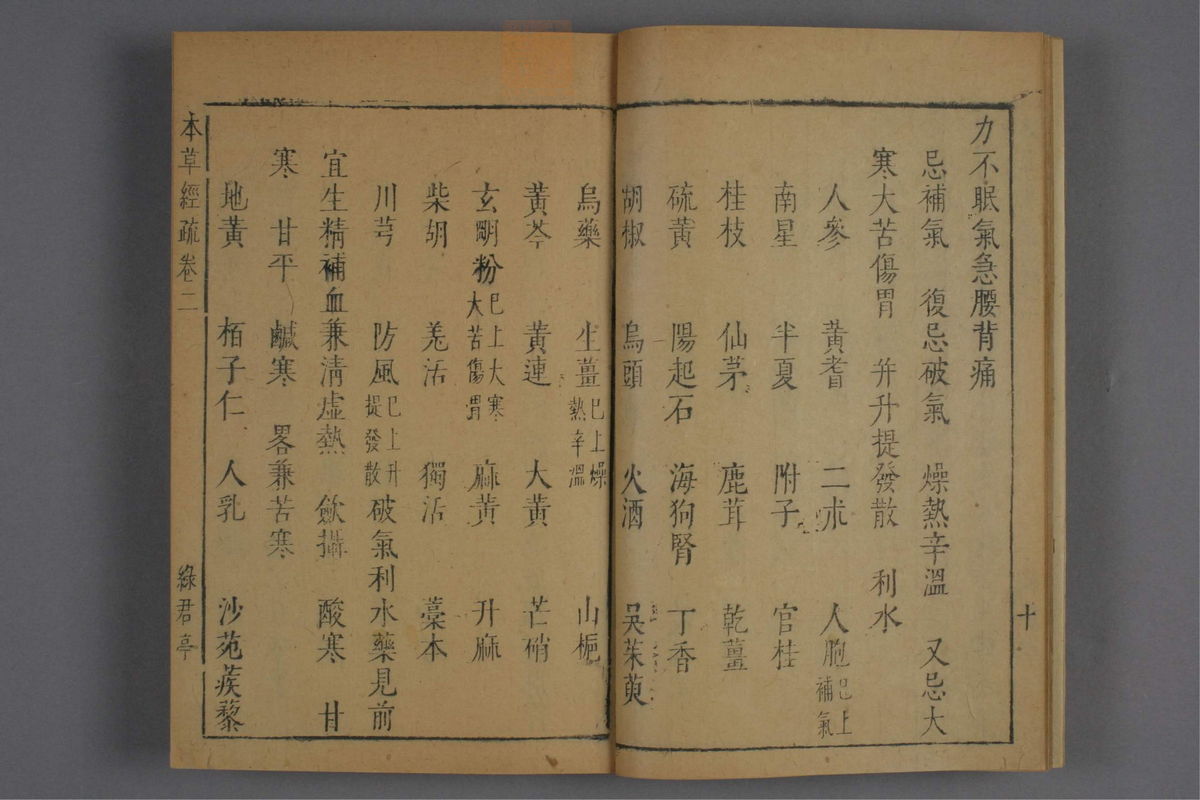 力不眠氣急腰背痛
忌補氣　復忌破氣　燥熱辛溫　又忌大
寒大苦傷胃　幷升提發散　利水
人參　黃耆　二朮　人胞巳上補氣
南星　半夏　附子　官桂
桂枝　仙茅　鹿茸　乾薑
硫黃　陽起石　海狗腎　丁香
胡椒　烏頭　火酒　吳茱萸
十
烏藥　生薑巳上燥熱辛溫　山梔
黃芩　黃連　大黃　芒硝
玄明粉巳上大寒大苦傷胃　麻黃　升麻
柴胡　羗活　獨活　藁本
川芎　防風巳上升提發散　破氣利水藥見前
宜生精補血兼清虛熱　斂攝　酸寒　甘
寒　甘平　鹹寒　畧兼苦寒
地黃　栢子仁　人乳　沙苑蒺藜
本草經疏卷二
綠君亭